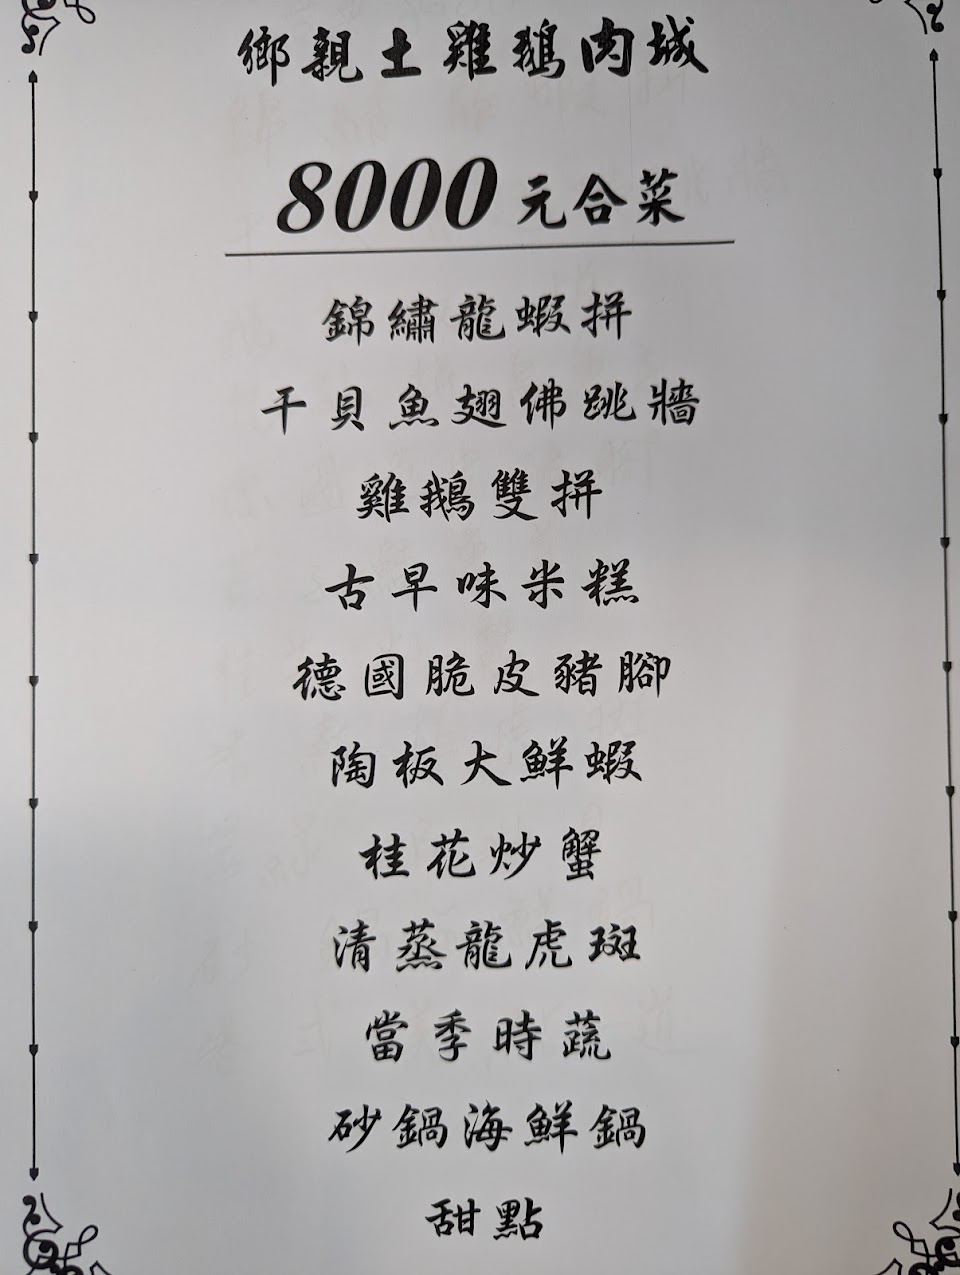 鄉親土雞鵝肉城
8000元合菜
錦繡龍蝦拼
干貝魚翅佛跳牆
雞鵝雙拼
古早味米糕
德國脆皮豬腳
陶板大鮮蝦
桂花炒蟹
清蒸龍虎斑
當季時蔬
砂鍋海鮮鍋
甜點